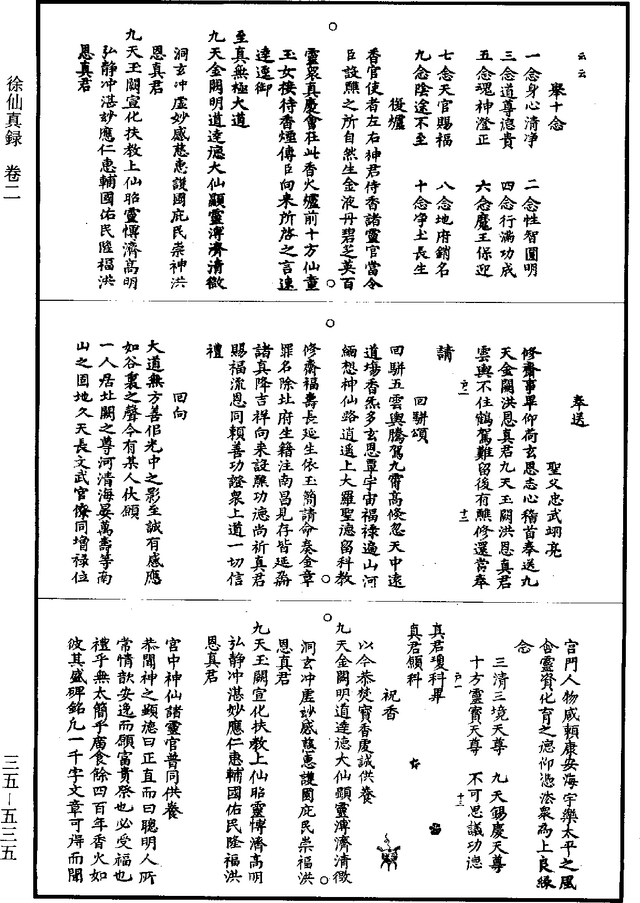 云云
舉十念
一念身心清净　二念性智圓明
三念道尊德貴　四念行滿功成
五念魂神澄正　六念魔王保迎
七念天官賜福　八念地府銷名
九念陰途不至　十念净土長生
復爐
香官使者左右神君侍香諸靈官當令
臣設醮之所自然生金液丹碧芝英百
靈衆真慶會在此香火爐前十方仙童
玉女接侍香煙傳臣向來所啓之言速
達逕御
至真無極大道
九天金闕明道達德大仙顯靈溥濟清微
洞玄冲虛妙感慈惠護國庇民崇神洪
恩真君
九天玉闕宣化扶教上仙昭靈博濟高明
弘静冲湛妙應仁惠輔國佑民隆福洪
恩真君
奉送
聖父忠武翊亮
修齋事畢仰荷玄恩志心稽首奉送九
天金闕洪恩真君九天玉闕洪恩真君
雲輿不住鶴駕難留後有醮修還當奉
請
回駢頌
回駢五雲輿騰駕九霄高倏忽天中遠
道場香炁多玄恩覃宇宙福禄遍山河
緬想神仙路逍遥上大羅聖德留科教
修齋福壽長延生依玉簡請命奏金章
罪名除北府生籍注南昌見存皆延齋
諸真降吉祥向來設醮功德尚祈真君
賜福流恩同賴善功證衆上道一切信
禮
回向
大道無方善佀光中之影至誠有感應
如谷裏之聲今有某人伏願
一人居北闕之尊河清海晏萬壽等南
山之固地久天長文武官僚同增禄位
宫門人物咸頼康安海宇樂太平之風
含靈資化育之德仰憑法衆爲上良緣
念
三清三境天尊　九天錫慶天尊
十方靈寶天尊　不可思議功德
真君瓊科畢
真君願科
祝香
以今恭焚寶香虔誠供養
九天金闕明道達德大仙顯靈溥濟清微
洞玄冲虛妙感慈惠護國庇民崇福洪
恩真君
九天玉闕宣化扶教上仙昭靈博濟高明
弘静冲湛妙應仁惠輔國佑民隆福洪
恩真君
宫中神仙諸靈官普同供養
恭聞神之顯德曰正直而曰聰明人所
常情歆安逸而願富貴祭也必受福也
禮乎無太簡乎廣食餘四百年香火如
彼其盛碑銘九一千字文章可得而聞
徐仙真録　卷二
三五—五三五